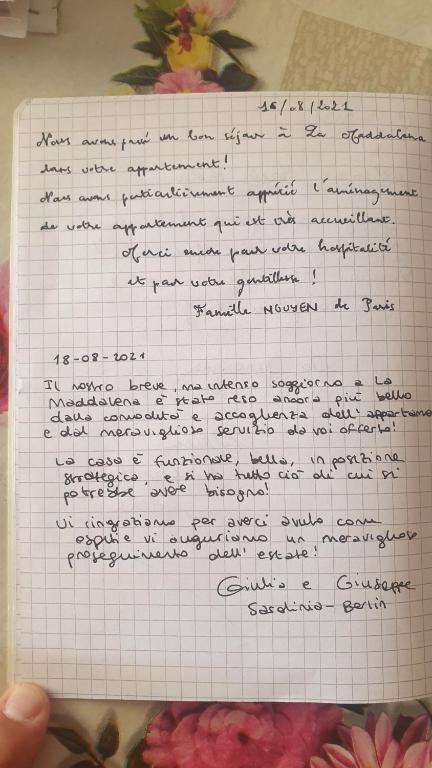 16/08/2021
Nous avons passé un bon séjour à La Maddalena
dans votre appartement!
Nous avons particulièrement apprécié l'aménagement
de votre appartement qui est très accueillant.
Merci encore pour votre hospitalité
et par votre gentillesse!
Famille NGUYEN de Paris
18-08-2021
Il nostro breve, ma intenso soggiorno a La
Maddalena è stato reso ancora più bello
dalla comodità e accoglienza dell'appartame
e dal meraviglioso servizio da voi offerto!
La casa è funzionale, bella, in posizione
strategica, e si ha tutto ciò di cui si
potrebbe avere bisogno!
Vi ringraziamo per averci avuto come
ospiti e vi auguriamo un meraviglioso
proseguimento dell'estate!
Giulia e Giuseppe
Sardinia - Berlin